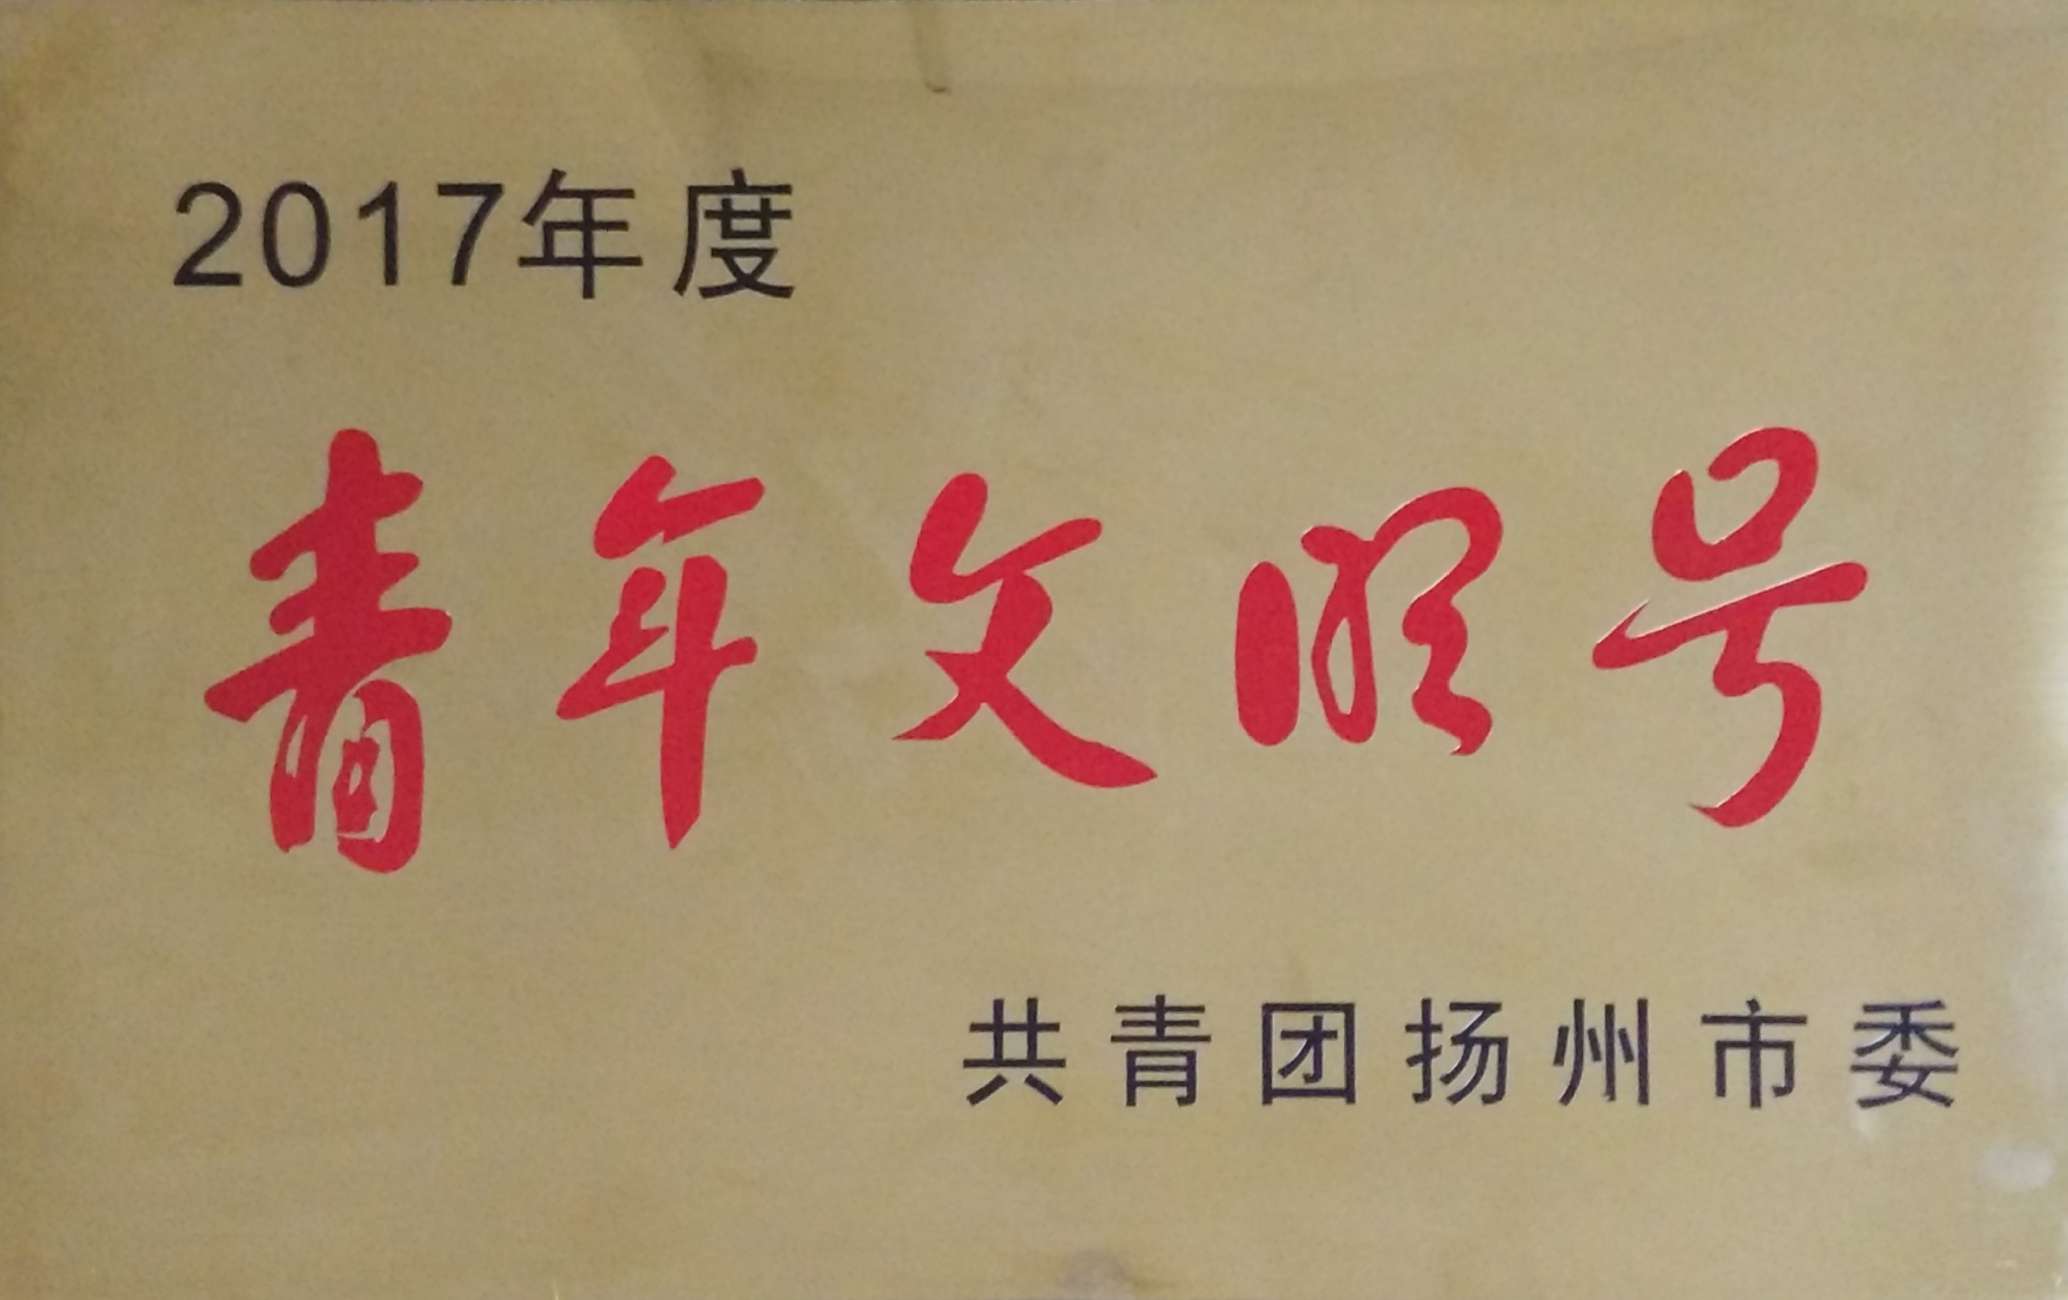 2017年度
青年文明号
共青团扬州市委